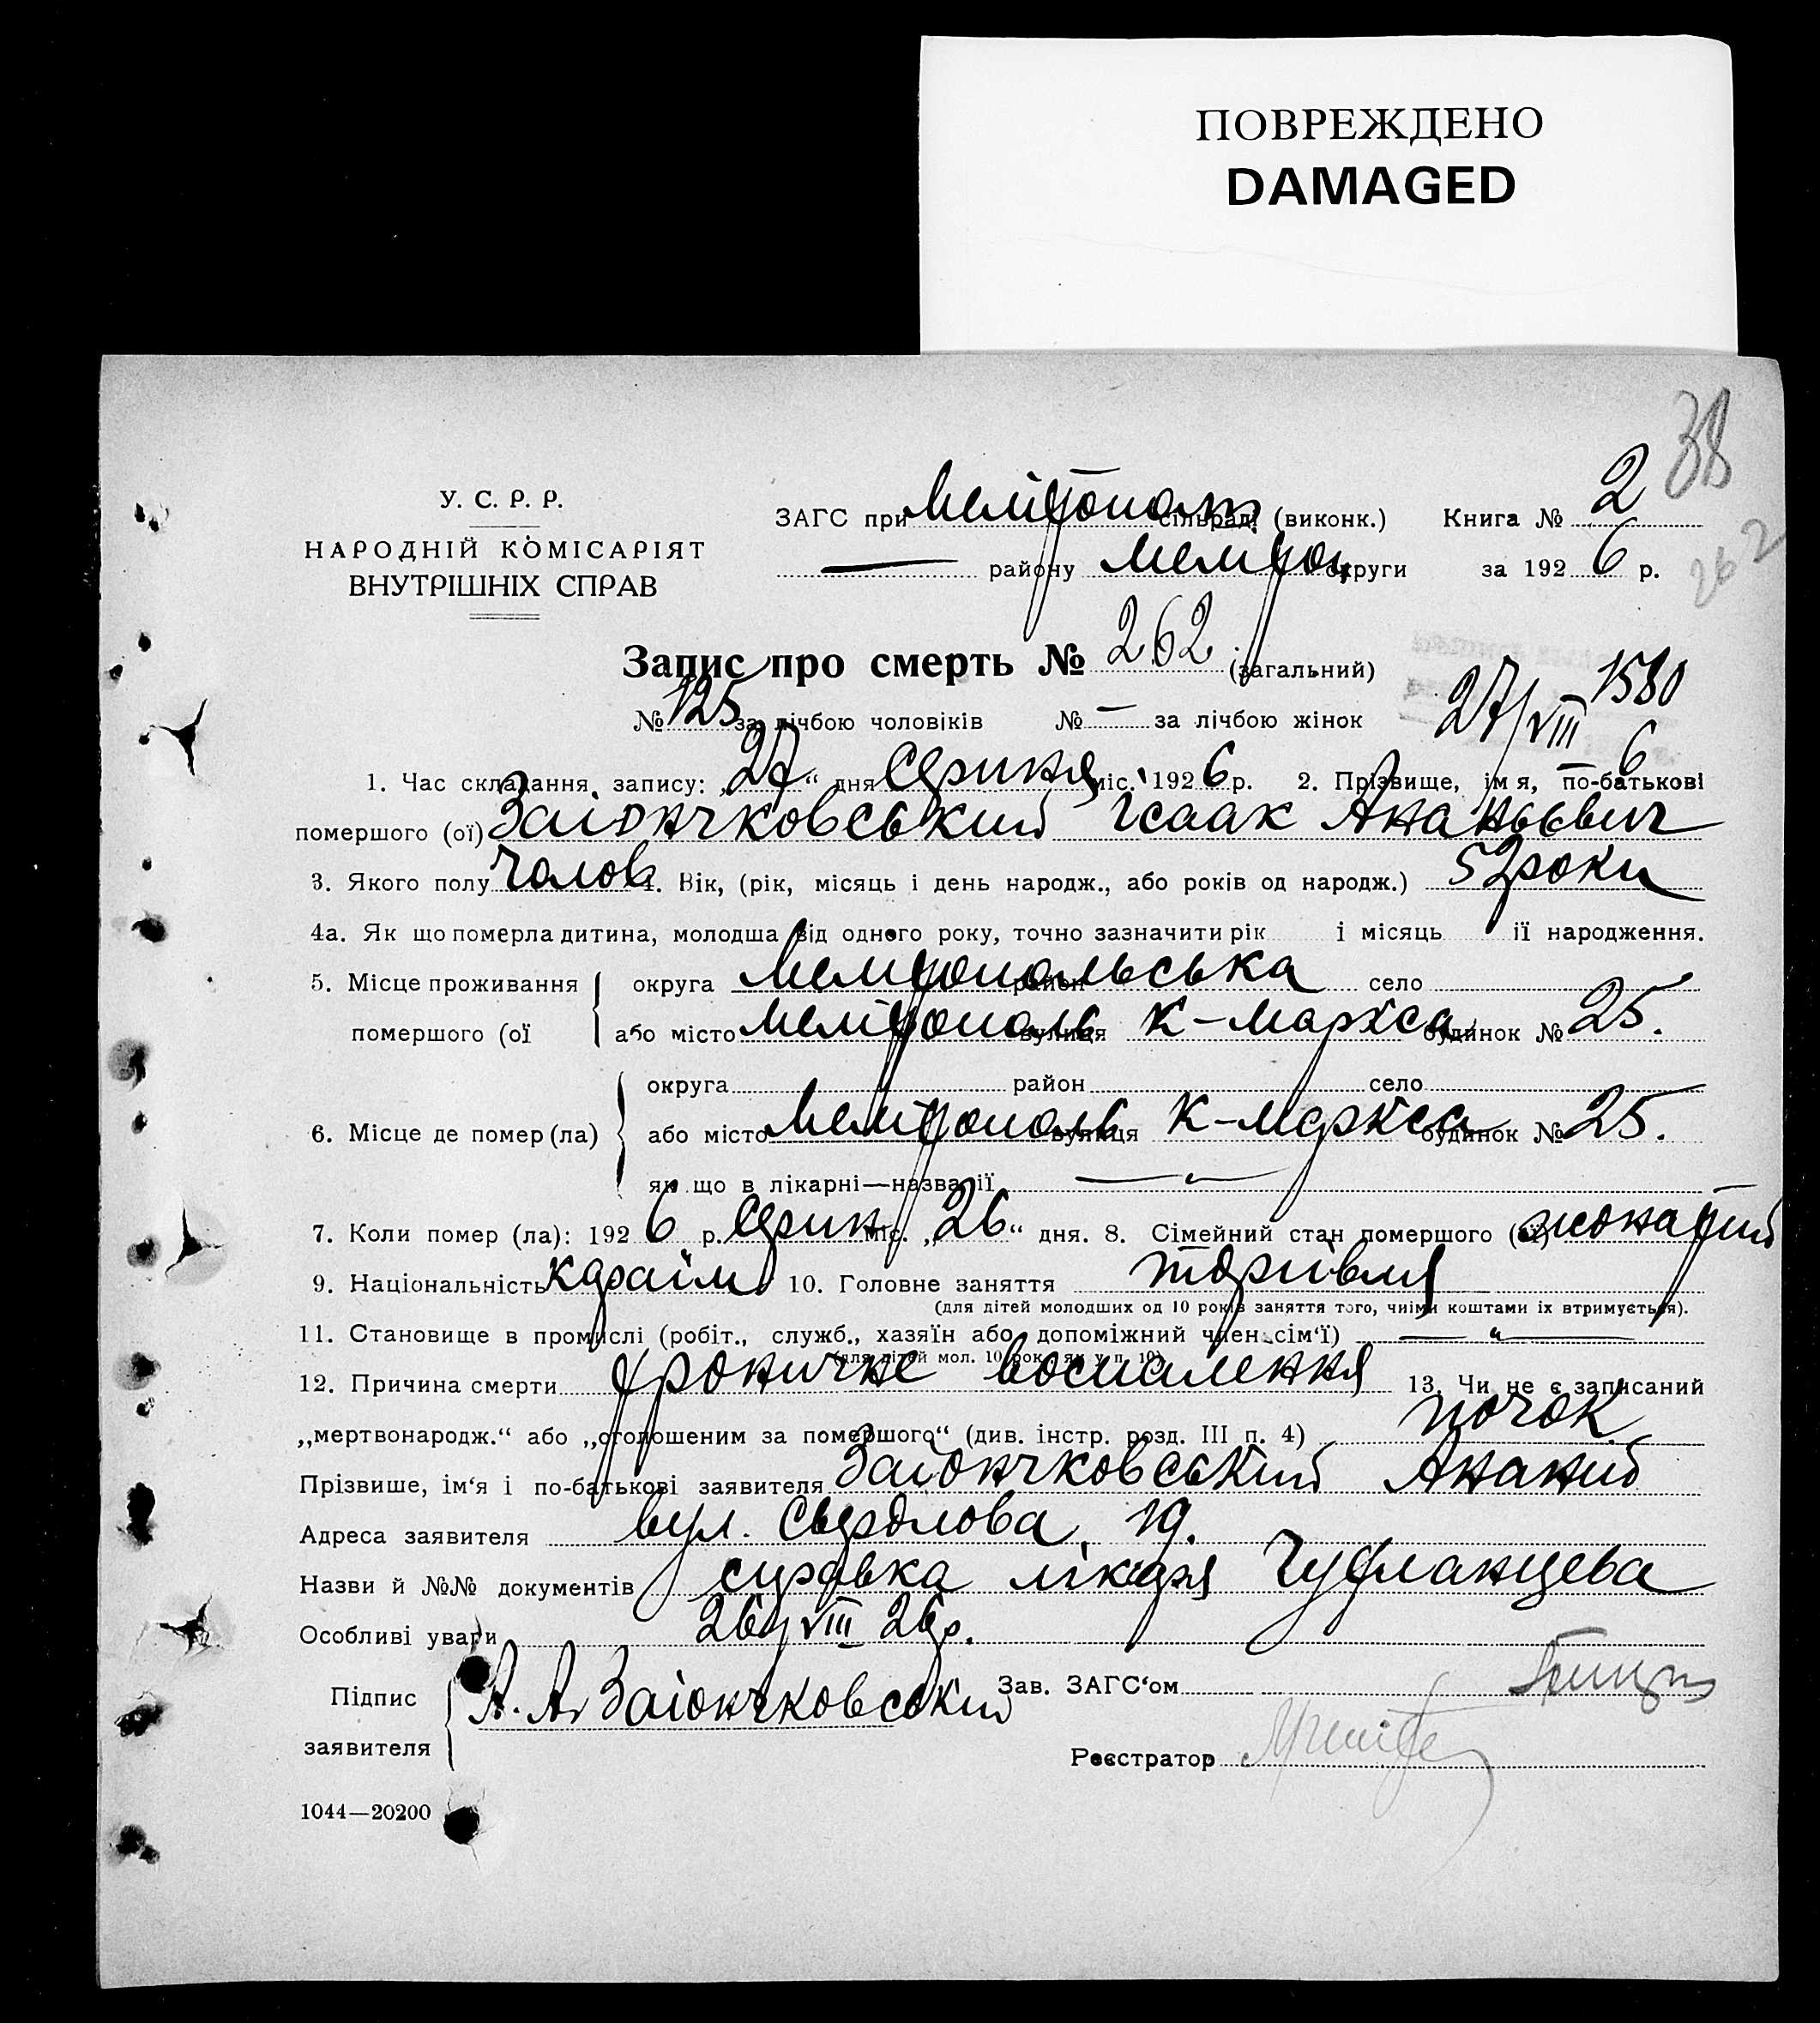 ПОВРЕЖДЕНО
DAMAGED
38
У. С. Р. Р.
НАРОДНІЙ КОМІСАРІЯТ
ВНУТРІШНІХ СПРАВ
ЗАГС при Мелітопол сільраді (виконк.) Книга № 2
— району Мелітоп округи за 1926 р.
262
Запис про смерть № 262 (загальний)
№ 125 за лічбою чоловіків № — за лічбою жінок
27/VIII 6 1580
1. Час складання запису: „27“ дня Серпня міс. 1926 р. 2. Прізвище, ім я, по-батькові
помершого (ої) Заіончковський Ісаак Ананьєвич
3. Якого полу Чолов 4. Вік, (рік, місяць і день народж., або років од народж.) 52 роки
4а. Як що померла дитина, молодша від одного року, точно зазначити рік і місяць її народження.
5. Місце проживання помершого (ої округа Мелітопольська район село
або місто Мелітополь вулиця К-Маркса будинок № 25.
6. Місце де помер (ла) округа район село
або місто Мелітополь вулиця К-Маркса будинок № 25.
як що в лікарні—назва її — „ —
7. Коли помер (ла): 1926 р. Серпн міс. „26“ дня. 8. Сімейний стан помершого (ої) жонатий
9. Національність караїм 10. Головне заняття торгівля
(для дітей молодших од 10 років заняття того, чиїми коштами їх втримується).
11. Становище в промислі (робіт., служб., хазяїн або допоміжний член сім‘ї) — „ —
(для дітей мол. 10 рок. як у п. 10)
12. Причина смерти хроничне воспалення 13. Чи не є записаний
почок
„мертвонародж.“ або „оголошеним за помершого“ (див. інстр. розд. III п. 4)
Прізвише, ім‘я і по-батькові заявителя Заіончковський Ананий
Адреса заявителя вул. Свердлова 19.
Назви й №№ документів справка лікаря Чуфланцева
Особливі уваги 26/VIII 26р.
Підпис заявителя А. А. Заіончковський Зав. ЗАГС‘ом
Реєстратор
1044—20200